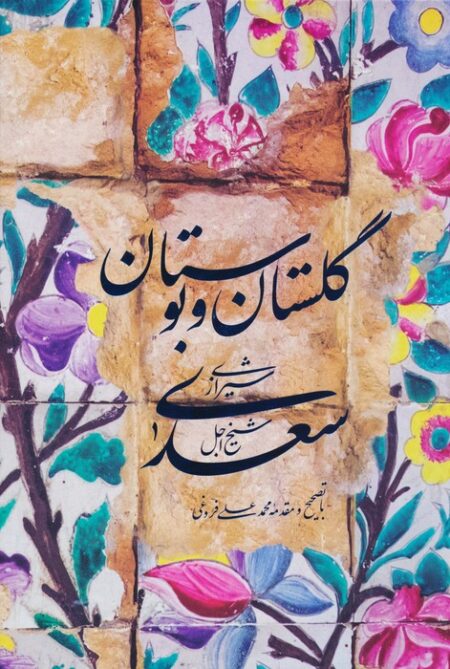 گلستان و بوستان
شیرازی
سعدی
شیخ اجل
۱
با تصحیح و مقدمه محمد علی فروغی